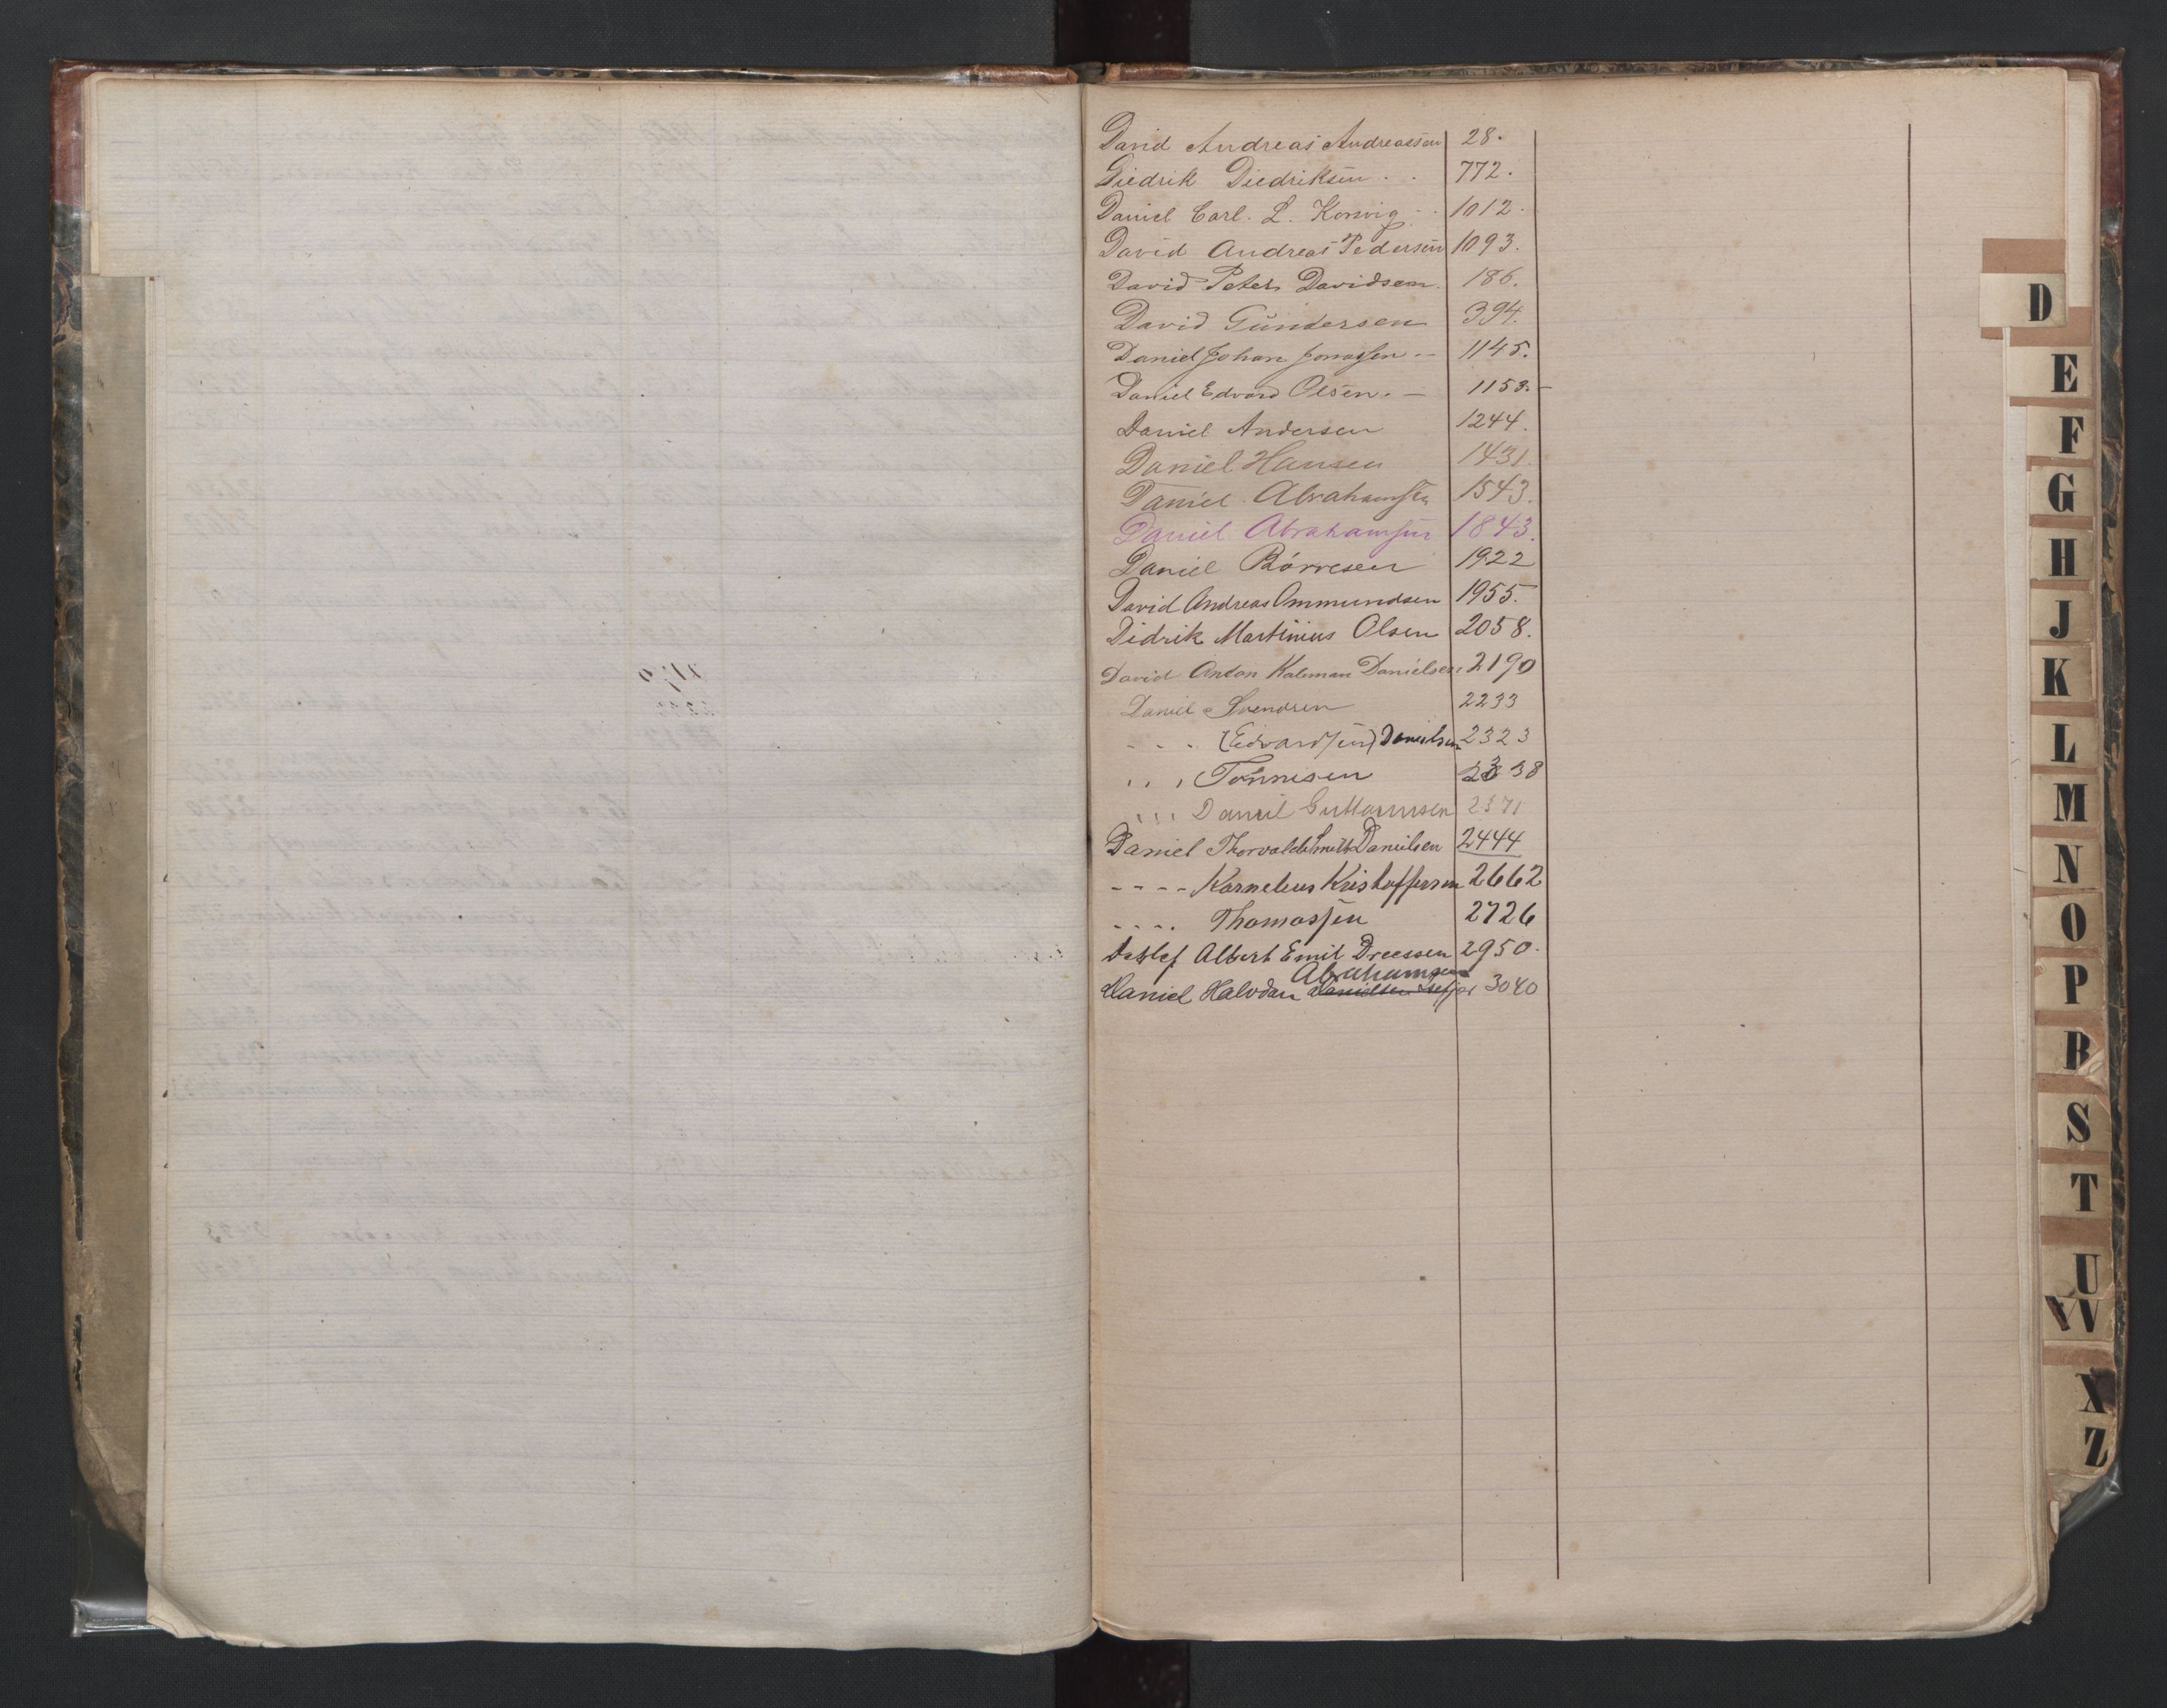 David Andreas Andreassen 28.
Diedrik Diedriksen . . 772.
Daniel Carl. L. Korvig - . 1012.
David Andreas Pedersen 1093.
David Peter Davidsen. 186.
David Gundersen 394.
Daniel Johan Jonassen - 1145.
Daniel Edvard Olsen. - 1153.-
Daniel Andersen 1244.
Daniel Hansen 1431.
Daniel Abrahamsen 1543.
Daniel Abrahamsen 1843.
Daniel Börresen 1922
David Andreas Ommundsen 1955.
Didrik Martinius Olsen 2058.
David Anton Kaleman Danielsen 2190
Daniel Svendsen 2233
- - - (Edvardsen) Danielsen 2323
, , , Tönnesen 2338
, , , Daniel Guttormsen 2371
Daniel Thorvald Smith Danielsen 2444
- - - - Karnelius Kristoffersen 2662
- - - - Thomassen 2726
Detlef Albert Emil Dreessen 2950.
Abrahamsen
Daniel Halvdan Danielsen 3040
D
E
F
G
H
J
K
L
M
N
O
P
R
S
T
U
VW
X
Z